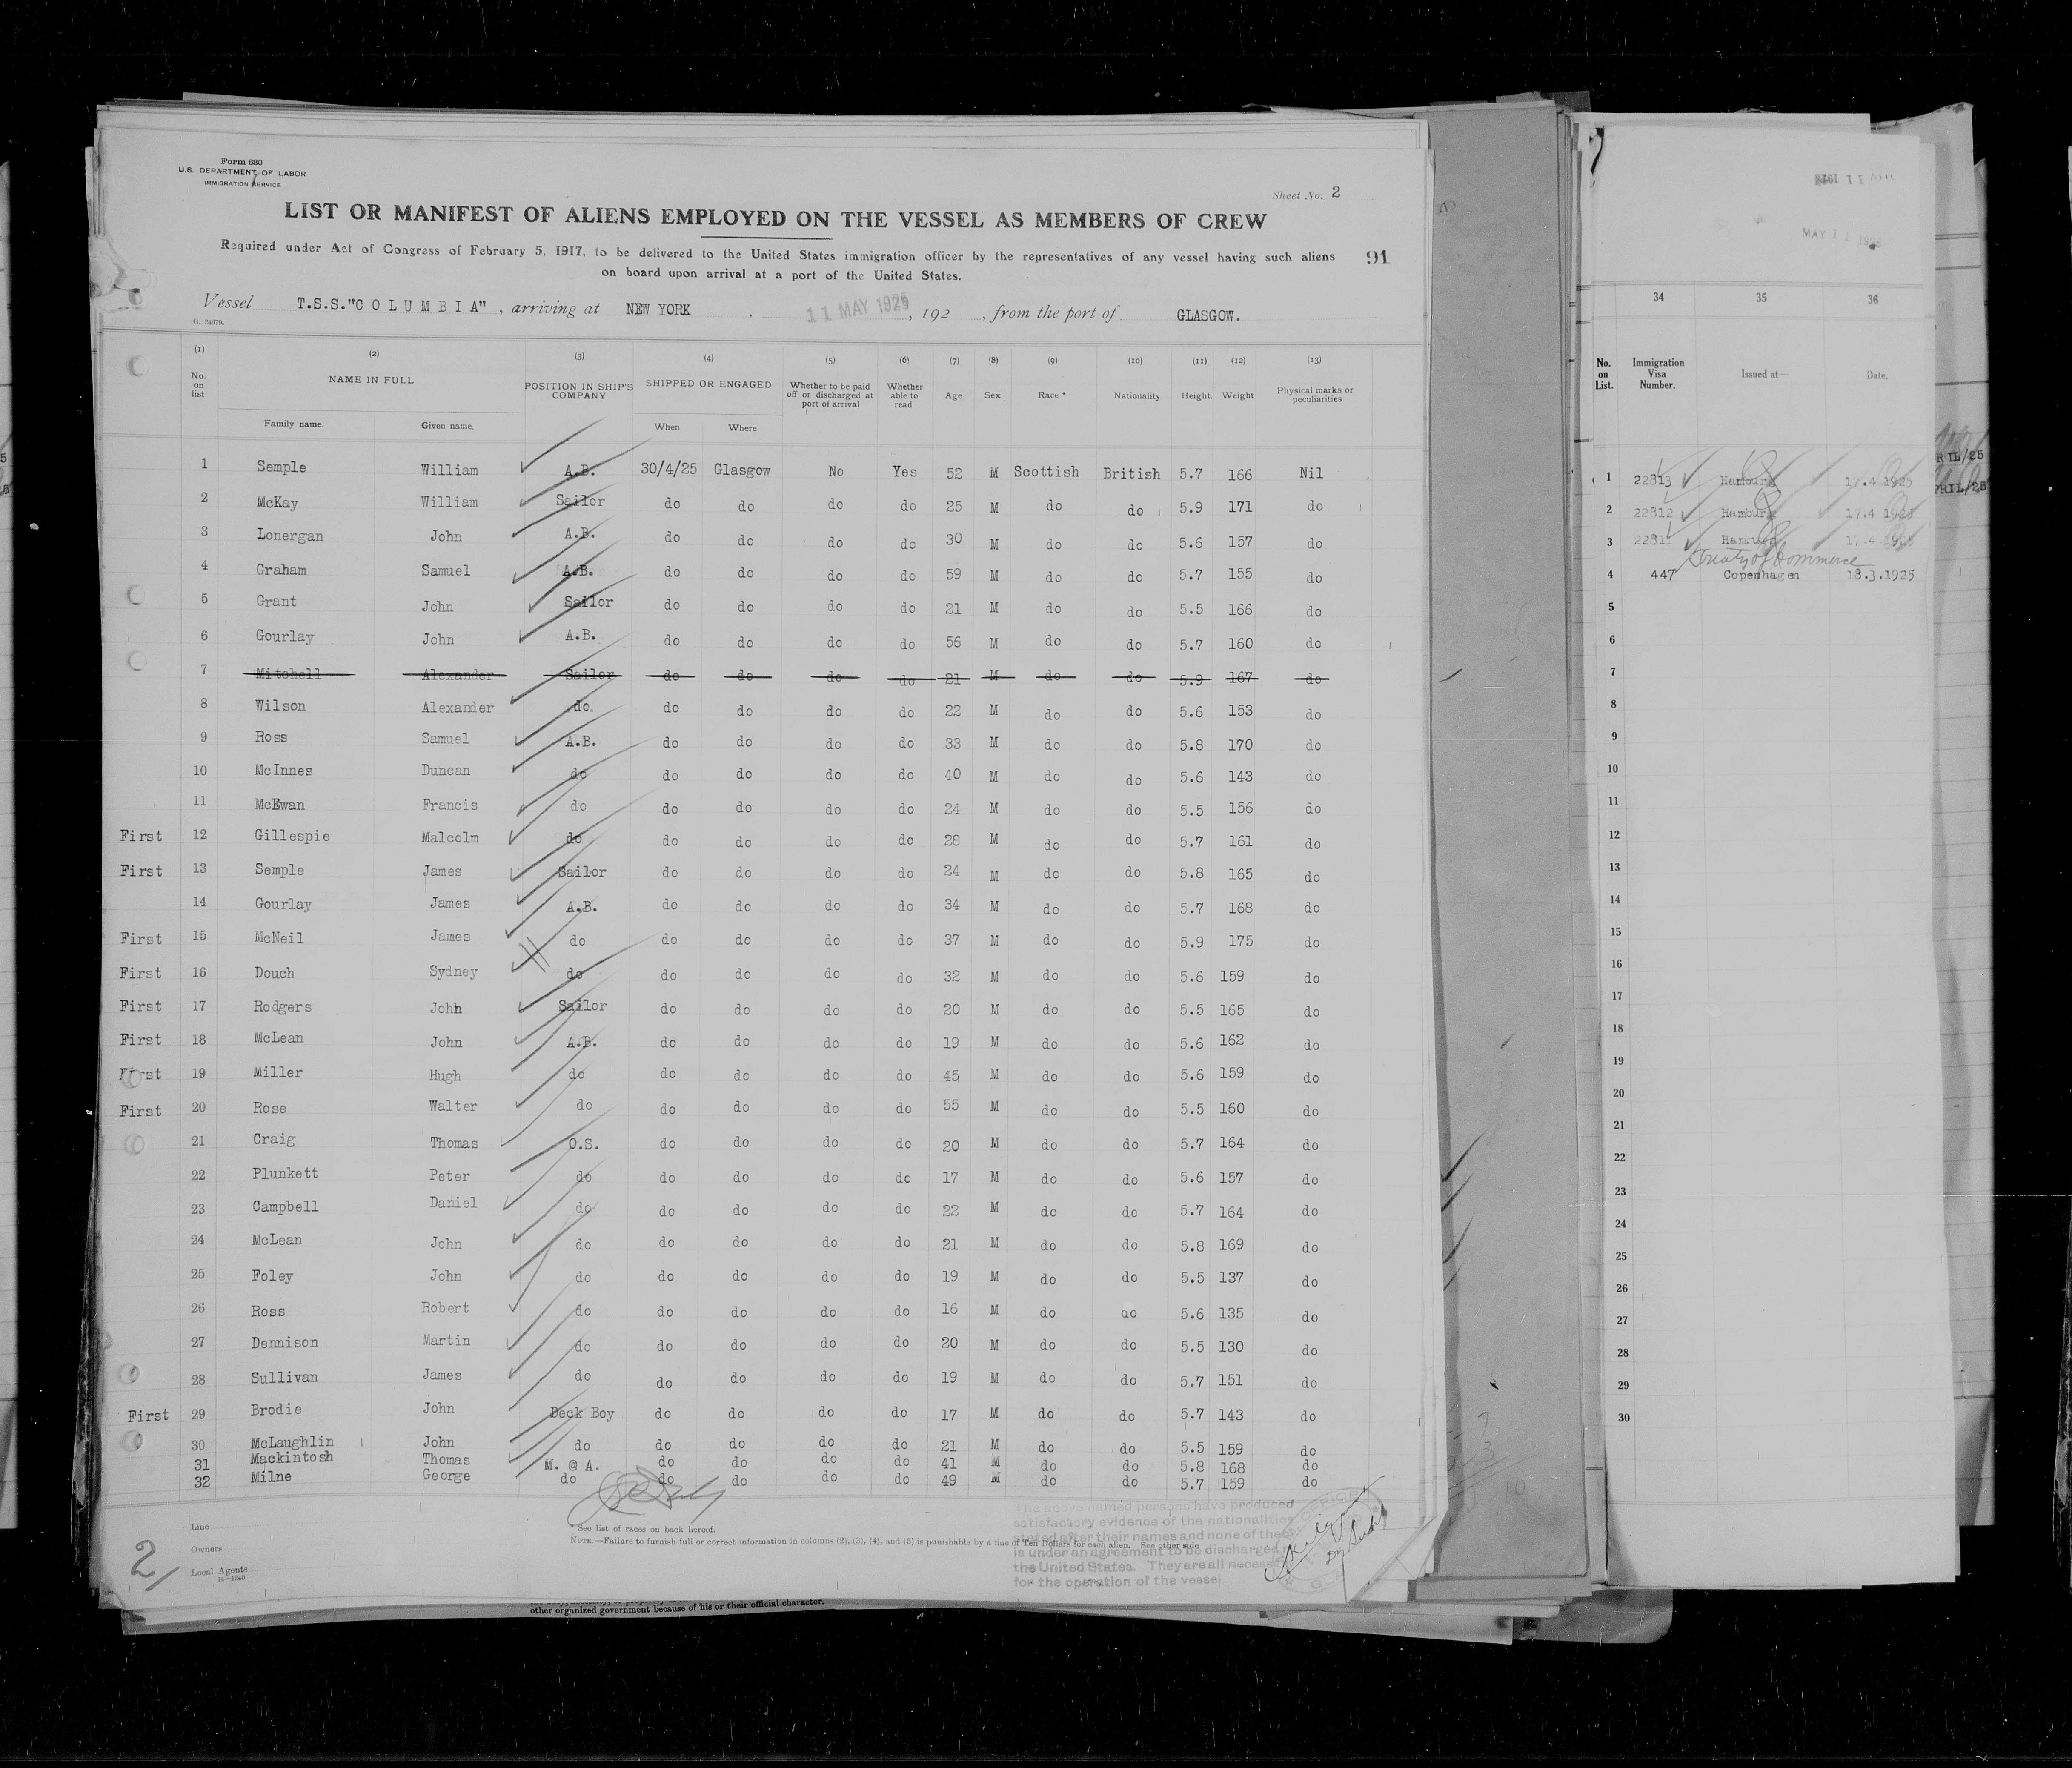 Form 680
U.S. DEPARTMENT OF LABOR
IMMIGRATION SERVICE
Sheet No. 2
LIST OR MANIFEST OF ALIENS EMPLOYED ON THE VESSEL AS MEMBERS OF CREW
Required under Act of Congress of February 5, 1917, to be delivered to the United States immigration officer by the representatives of any vessel having such aliens
on board upon arrival at a port of the United States.
91
Vessel T.S.S."C O L U M B I A" , arriving at NEW YORK , 11 MAY 1925 , 192 , from the port of GLASGOW.
(1) (2) (3) (4) (5) (6) (7) (8) (9) (10) (11) (12) (13)
No. on list NAME IN FULL POSITION IN SHIP'S COMPANY SHIPPED OR ENGAGED Whether to be paid off or discharged at port of arrival Whether able to read Age Sex Race * Nationality Height. Weight Physical marks or peculiarities
Family name. Given name. When Where
1 Semple William A.B. 30/4/25 Glasgow No Yes 52 M Scottish British 5.7 166 Nil
2 McKay William Sailor do do do do 25 M do do 5.9 171 do
3 Lonergan John A.B. do do do do 30 M do do 5.6 157 do
4 Graham Samuel A.B. do do do do 59 M do do 5.7 155 do
5 Grant John Sailor do do do do 21 M do do 5.5 166 do
6 Gourlay John A.B. do do do do 56 M do do 5.7 160 do
7 Mitchell Alexander Sailor do do do do 21 M do do 5.9 167 do
8 Wilson Alexander do. do do do do 22 M do do 5.6 153 do
9 Ross Samuel A.B. do do do do 33 M do do 5.8 170 do
10 McInnes Duncan do do do do do 40 M do do 5.6 143 do
11 McEwan Francis do do do do do 24 M do do 5.5 156 do
First 12 Gillespie Malcolm do do do do do 28 M do do 5.7 161 do
First 13 Semple James Sailor do do do do 24 M do do 5.8 165 do
14 Gourlay James A.B. do do do do 34 M do do 5.7 168 do
First 15 McNeil James do do do do do 37 M do do 5.9 175 do
First 16 Douch Sydney do do do do do 32 M do do 5.6 159 do
First 17 Rodgers John Sailor do do do do 20 M do do 5.5 165 do
First 18 McLean John A.B. do do do do 19 M do do 5.6 162 do
First 19 Miller Hugh do do do do do 45 M do do 5.6 159 do
First 20 Rose Walter do do do do do 55 M do do 5.5 160 do
21 Craig Thomas O.S. do do do do 20 M do do 5.7 164 do
22 Plunkett Peter do do do do do 17 M do do 5.6 157 do
23 Campbell Daniel do do do do do 22 M do do 5.7 164 do
24 McLean John do do do do do 21 M do do 5.8 169 do
25 Foley John do do do do do 19 M do do 5.5 137 do
26 Ross Robert do do do do do 16 M do do 5.6 135 do
27 Dennison Martin do do do do do 20 M do do 5.5 130 do
28 Sullivan James do do do do do 19 M do do 5.7 151 do
First 29 Brodie John Deck Boy do do do do 17 M do do 5.7 143 do
30 McLaughlin John do do do do do 21 M do do 5.5 159 do
31 Mackintosh Thomas M. @ A. do do do do 41 M do do 5.8 168 do
32 Milne George do do do do do 49 M do do 5.7 159 do
Line
Owners
Local Agents
14—1640
2/
* See list of races on back hereof.
NOTE.—Failure to furnish full or correct information in columns (2), (3), (4), and (5) is punishable by a fine of Ten Dollars for each alien. See other side
The above named persons have produced
satisfactory evidence of the nationalities
stated after their names and none of them
is under an agreement to be discharged
the United States. They are all necess
for the operation of the vessel
other organized government because of his or their official character.
MAY 1
34 35 36
No. on List. Immigration Visa Number. Issued at— Date.
1 22813 Hamburg 17.4 1925
2 22812 Hamburg 17.4 1925
3 Hamburg 17.4 1925
Treaty of Commerce
4 447 Copenhagen 18.3.1925
5
6
7
8
9
10
11
12
13
14
15
16
17
18
19
20
21
22
23
24
25
26
27
28
29
30
RIL/25
PRIL/25